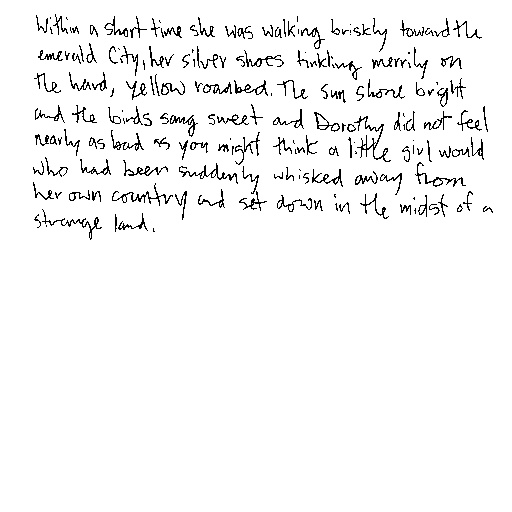 Within a short time she was walking briskly toward the
emerald City, her silver shoes tinkling merrily on
the hard, yellow roadbed. The sun shone bright
and the birds sang sweet and Dorothy did not feel
nearly as bad as you might think a little girl would
who had been suddenly whisked away from
her own country and set down in the midst of a
strange land.